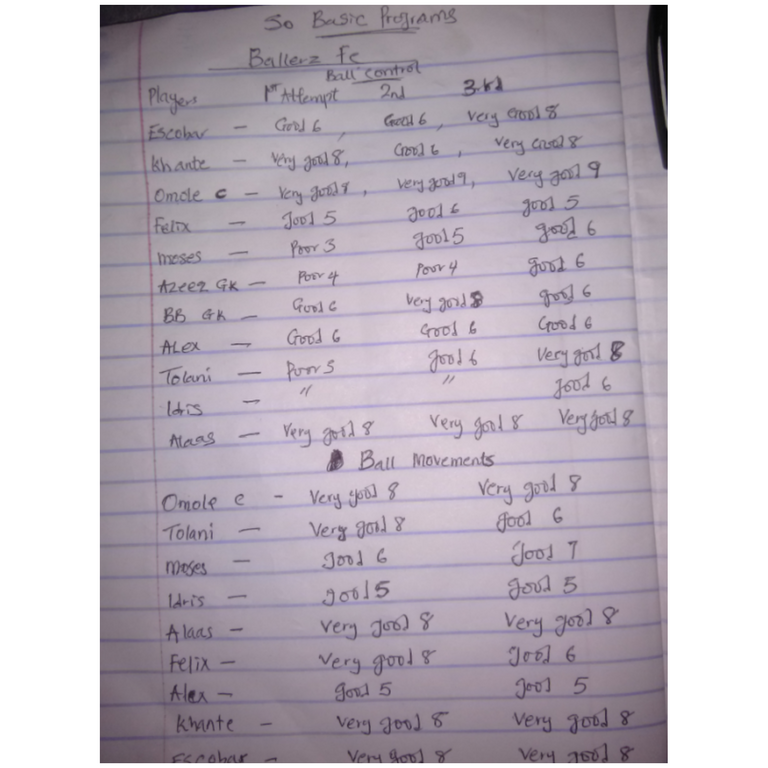 So Basic Programs
Ballerz Fc
Ball control
Players 1st Attempt 2nd 3rd
Escobar - Good 6, Good 6, Very Good 8
Khante - Very good 8, Good 6, Very Good 8
Omole C - Very good 8, Very good 9, Very good 9
Felix - good 5 good 6 good 5
Moses - Poor 3 good 5 good 6
Azeez GK - Poor 4 Poor 4 good 6
BB GK - Good 6 Very good 8 good 6
ALex - Good 6 Good 6 Good 6
Tolani - Poor 5 good 6 Very good 8
Idris - " " good 6
Alaas - Very good 8 Very good 8 Very good 8
Ball Movements
Omole c - Very good 8 Very good 8
Tolani - Very good 8 good 6
Moses - good 6 good 7
Idris - good 5 good 5
Alaas - Very good 8 Very good 8
Felix - Very good 8 good 6
Alex - good 5 good 5
Khante - Very good 8 Very good 8
Escobar - Very good 8 Very good 8